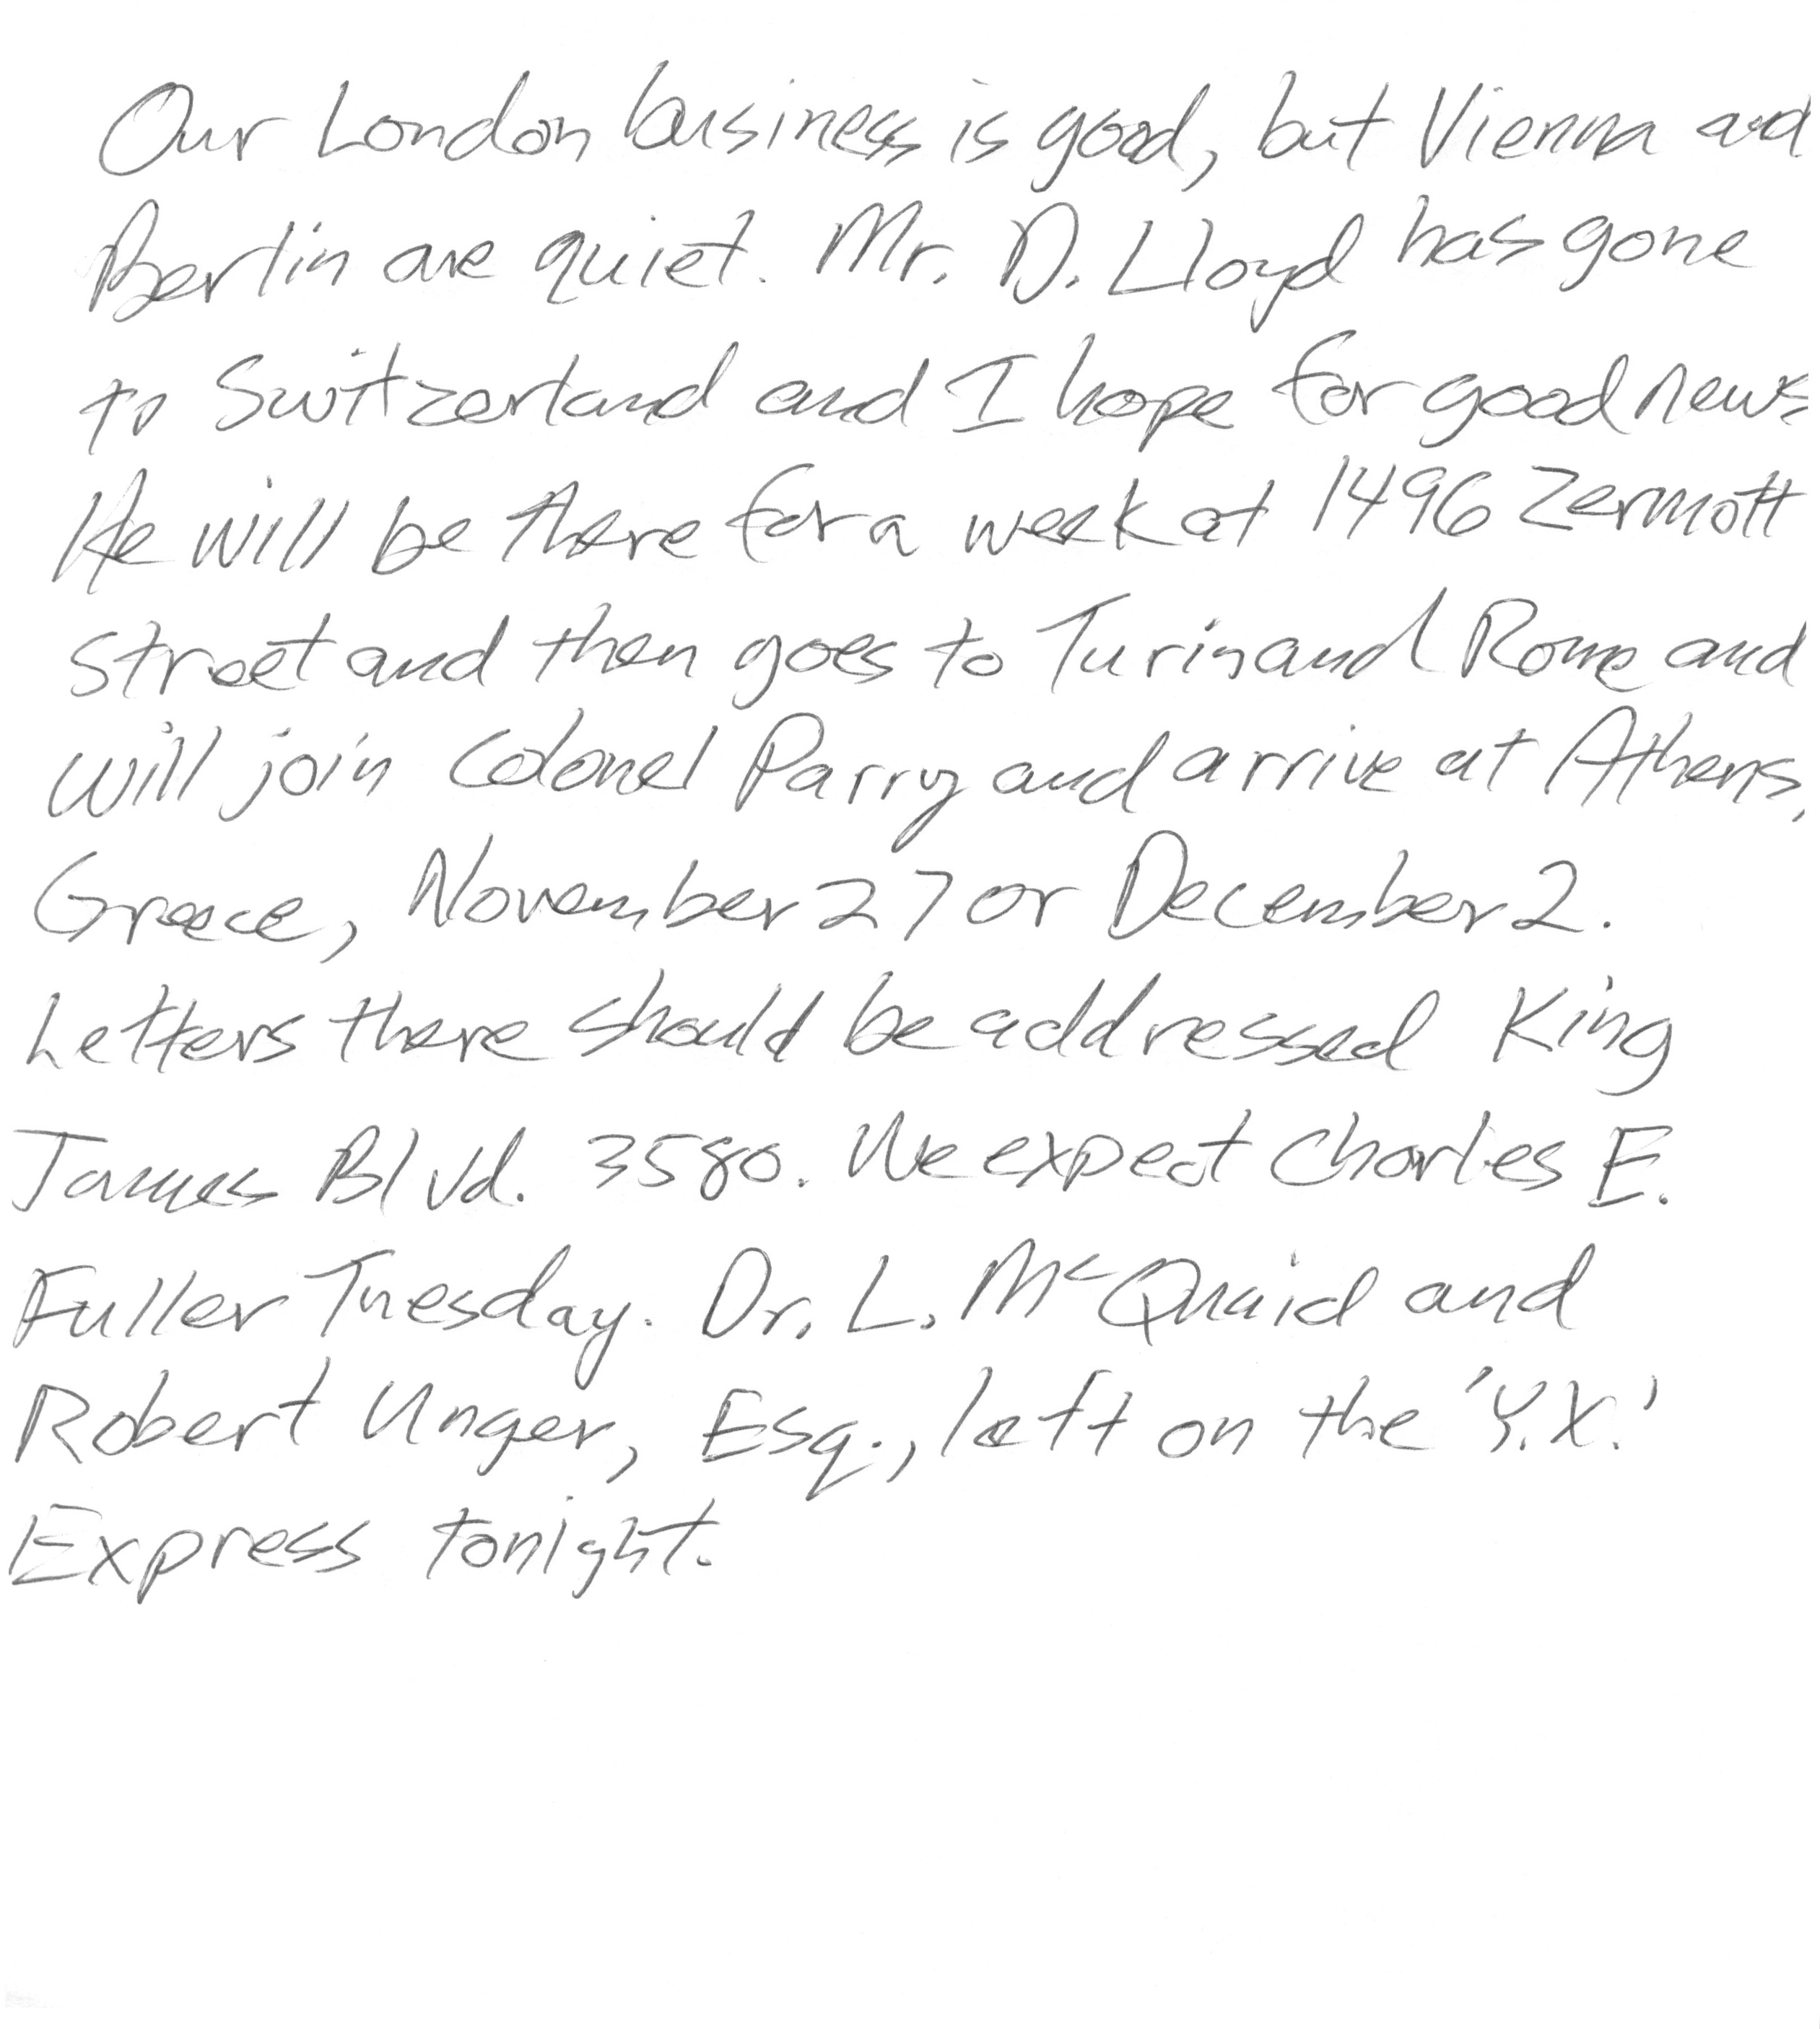 Our London business is good, but Vienna and
Berlin are quiet. Mr. D. Lloyd has gone
to Switzerland and I hope for good news
He will be there for a week at 1496 Zermott
street and then goes to Turin and Rome and
will join Colonel Parry and arrive at Athens,
Greece, November 27 or December 2.
Letters there should be addressed King
James Blvd. 3580. We expect Charles E.
Fuller Tuesday. Dr. L. McQuaid and
Robert Unger, Esq., left on the 'Y.X.'
Express tonight.